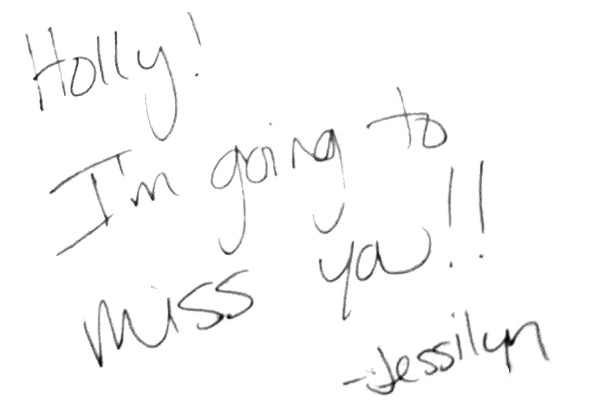 Holly!
I'm going to
miss you!!
-Jessilyn